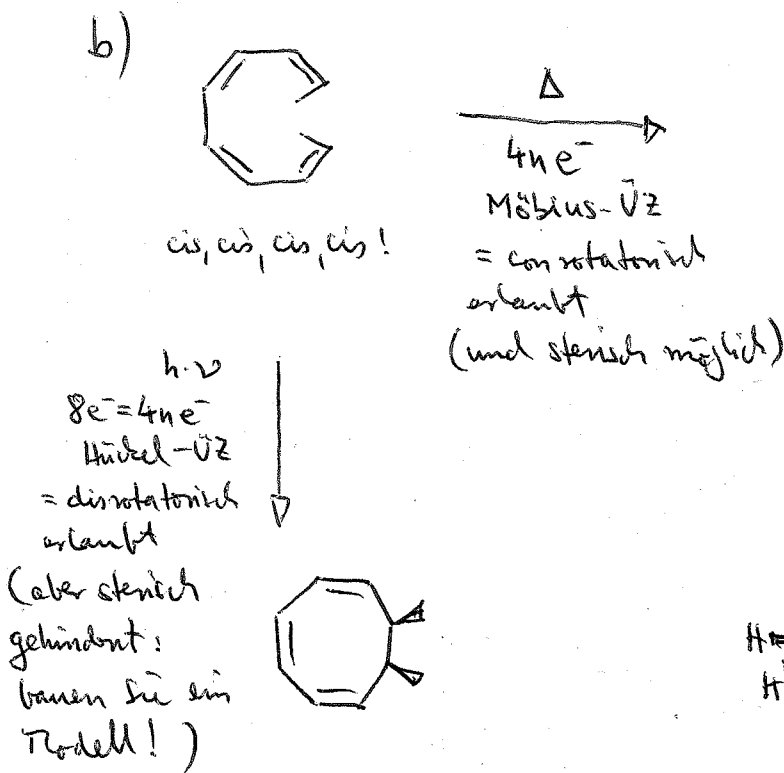 b)
Δ
4n e⁻
Möbius-ÜZ
= conrotatorisch
erlaubt
(und sterisch möglich)
cis, cis, cis, cis!
h·ν
8e⁻ = 4n e⁻
Hückel-ÜZ
= disrotatorisch
erlaubt
(aber sterisch
gehindert:
bauen Sie ein
Modell!)
H
H